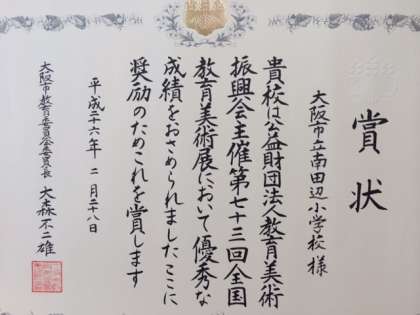 賞状
大阪市立南田辺小学校 様
貴校は公益財団法人教育美術
振興会主催第七十三回全国
教育美術展において優秀な
成績をおさめられましたここに
奨励のためこれを賞します
平成二十六年 二月二十八日
大阪市教育委員会委員長 大森不二雄